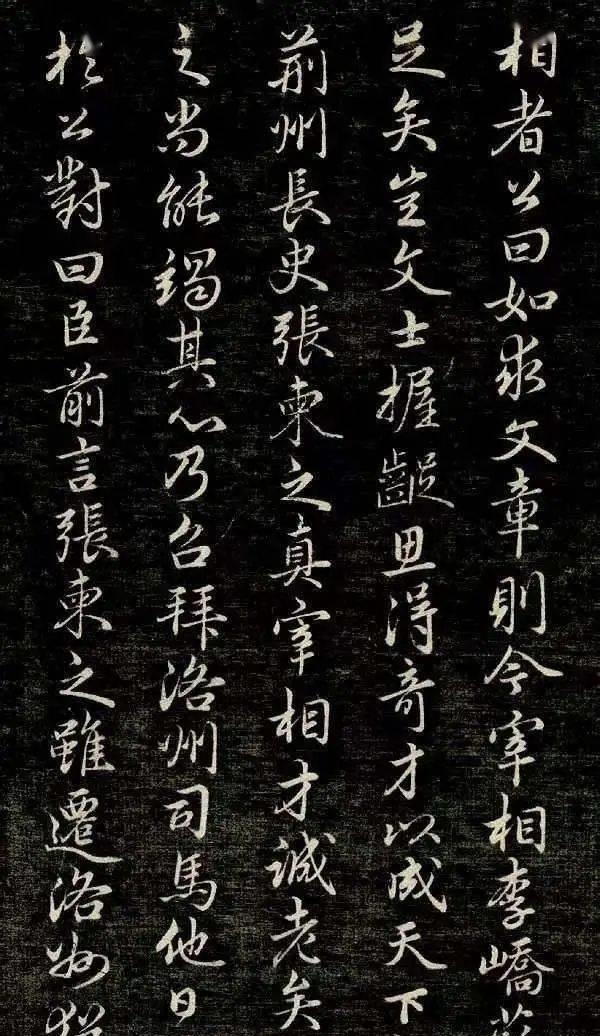 相者公曰如求文章則今宰相李嶠
足矣豈文士握齪思得奇才以成天下
荊州長史張柬之真宰相才誠老矣
之尚能竭其心乃召拜洛州司馬他日
於公對曰臣前言張柬之雖遷洛州猶